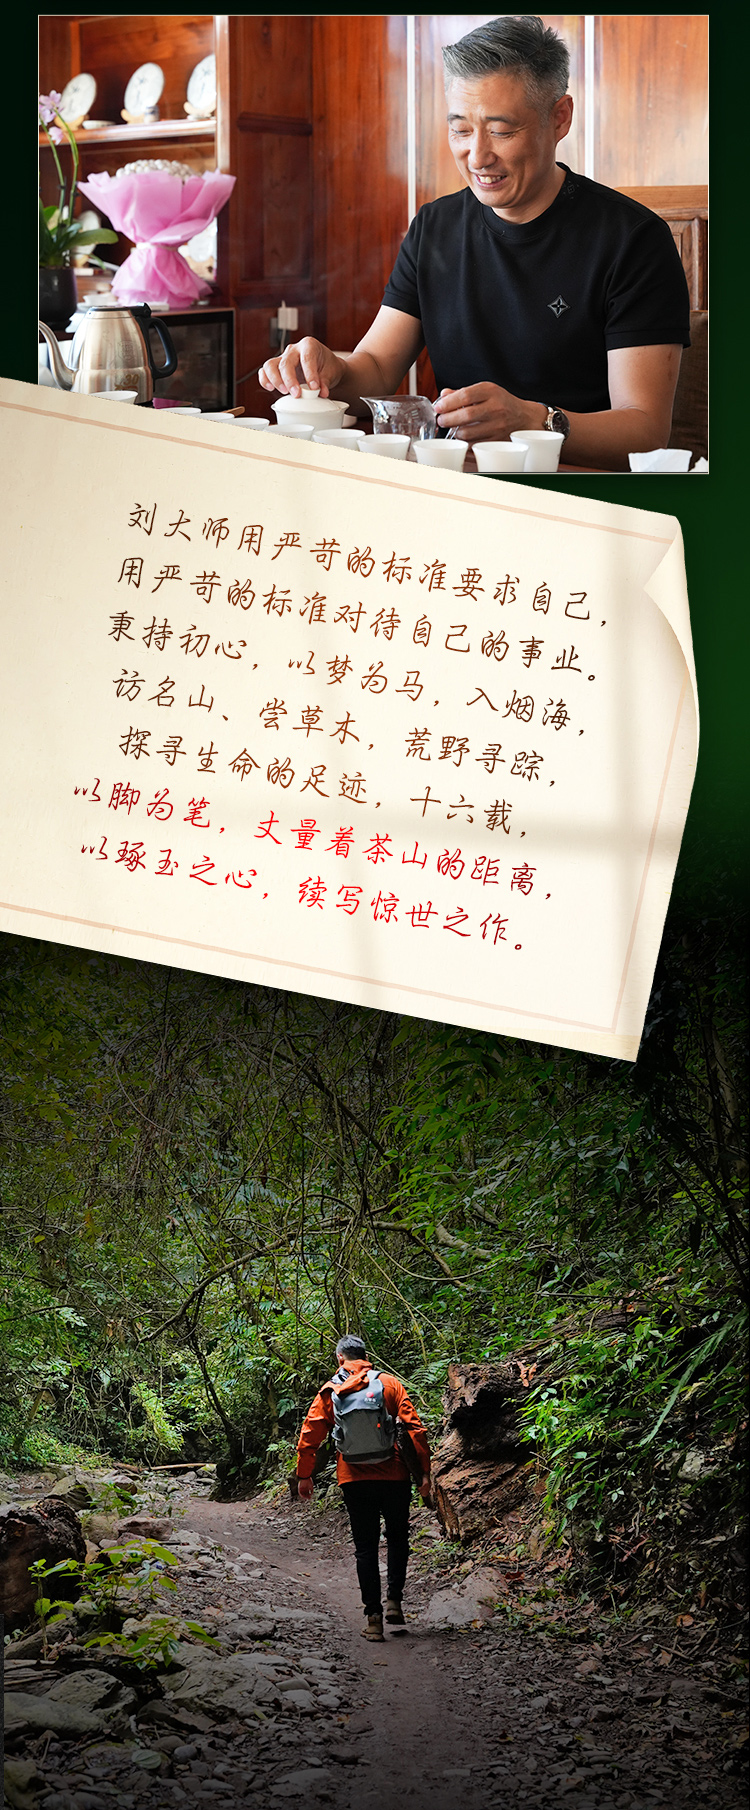 刘大师用严苛的标准要求自己，
用严苛的标准对待自己的事业。
秉持初心，以梦为马，入烟海，
访名山、尝草木，荒野寻踪，
探寻生命的足迹，十六载，
以脚为笔，丈量着茶山的距离，
以琢玉之心，续写惊世之作。